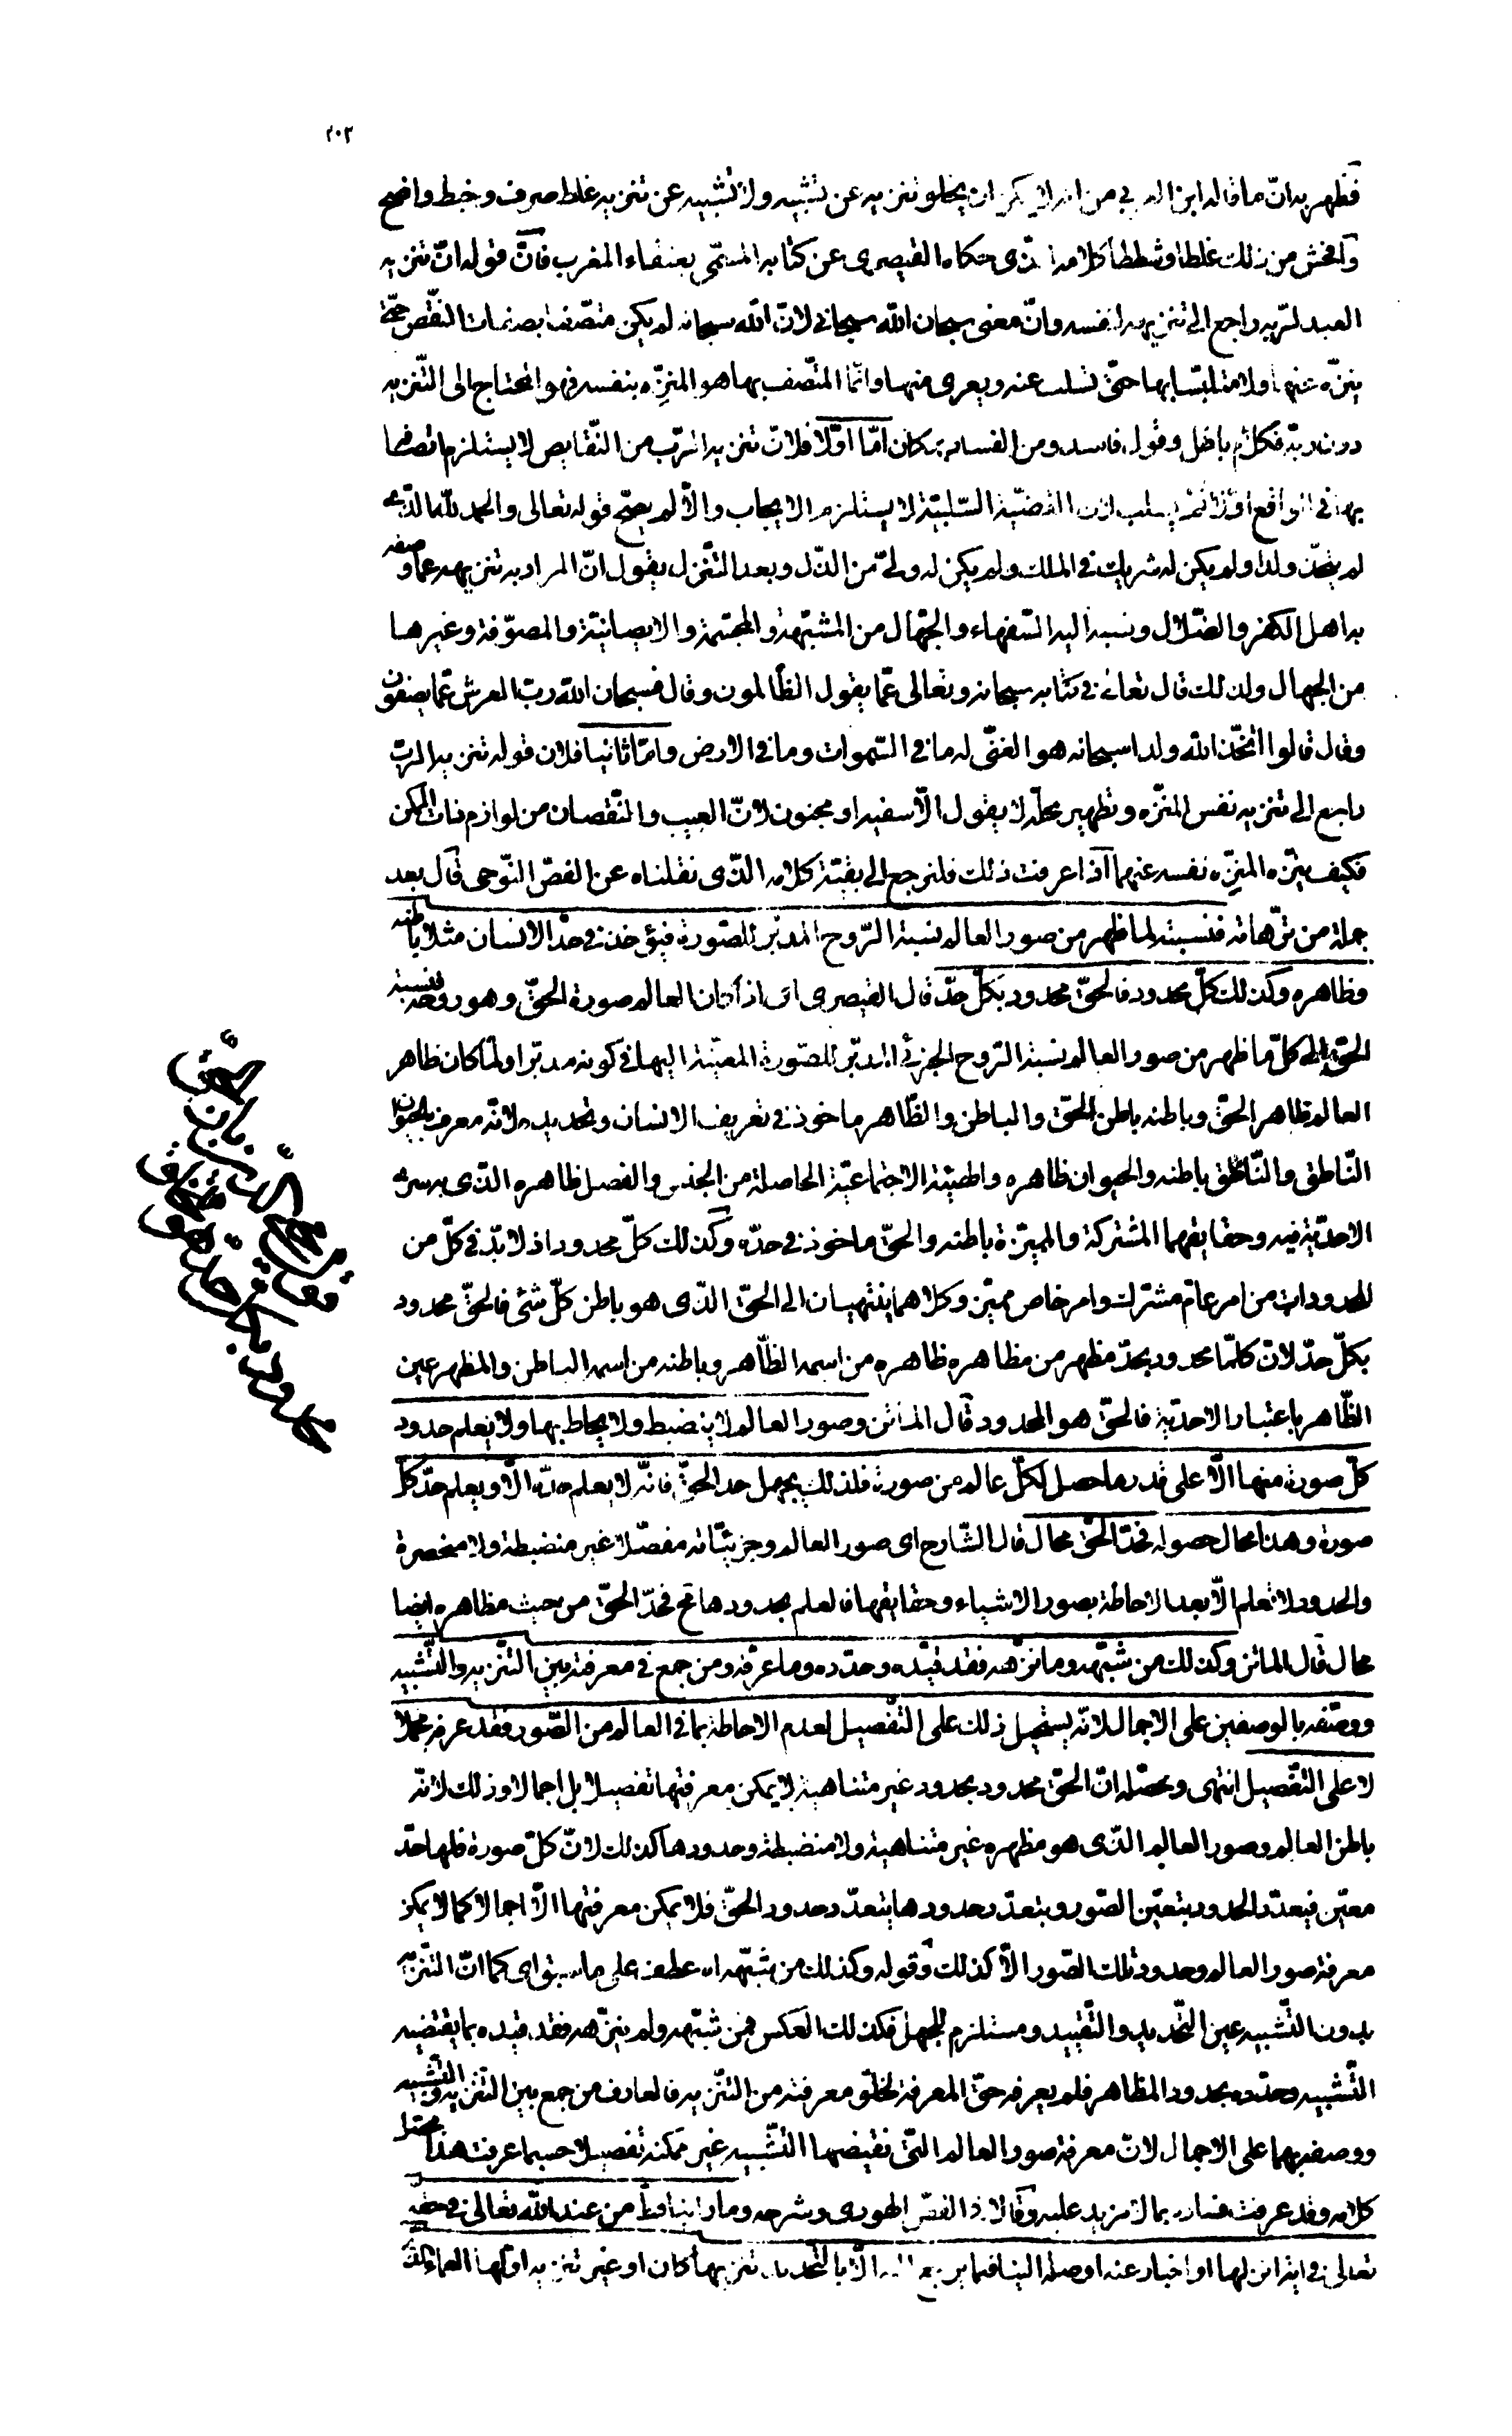 ٢٠٢
فظهر به ان ما قاله ابن العربي من انه لا يمكن ان يخلو تنزيه عن تشبيه ولا تشبيه عن تنزيه غلط صرف وخبط واضح
وأفحش من ذلك غلطا وشططا كلامه الذى حكاه القيصرى عن كتابه المسمّى بعنقاء المغرب فانّ قوله انّ تنزيه
العبد لربه راجع الى تنزيهه لنفسه وانّ معنى سبحان الله سبحانى لانّ الله سبحانه لم يكن متّصفا بصفات النّقص حتّى
ينزّه عنها ولا متلبّسا بها حتّى تسلب عنه ويعرى منها وانّما المتّصف بها هو المنزّه بنفسه فهو المحتاج الى التّنزيه
دون ربّه فكلام باطل وقول فاسد ومن الفساد بمكان امّا اوّلا فلانّ تنزيه الرّب من النّقايص لا يستلزم اتصافها
بها فى الواقع اوّلا ثم يسلب لان القضيّة السّلبيّة لا يستلزم الايجاب والّا لم يصحّ قوله تعالى والحمد لله الّذى
لم يتّخذ ولدا ولم يكن له شريك فى الملك ولم يكن له ولىّ من الذّل وبعد التّنزل يقول انّ المراد به تنزيهه عمّا وصفه
به اهل الكفر والضّلال ونسبه اليه السّفهاء والجهّال من المشبّهة والمجسّمة والمصوّفة وغيرها
من الجهال ولذلك قال تعالى فى كتابه سبحانه وتعالى عمّا يقول الظّالمون وقال فسبحان الله ربّ العرش عمّا يصفون
وقال قالوا اتّخذ الله ولدا سبحانه هو الغنّى له ما فى السّموات وما فى الارض وامّا ثانيا فلان قوله تنزيه الرّب
راجع الى تنزيه نفس المنزّه وتطهير محلّه لا يقول الّا سفيه او مجنون لانّ العيب والنّقصان من لوازم ذات الممكن
فكيف ينزّه المنزّه نفسه عنهما اذا عرفت ذلك فلنرجع الى بقيّة كلامه الذّى نقلناه عن الفصّ النّوحى قال بعد
جملة من ترّهاته فنسبته لما ظهر من صور العالم نسبة الرّوح المدبّر للصّورة فيؤخذ فى حدّ الانسان مثلا باطنه
وظاهره وكذلك كلّ محدود فالحقّ محدود بكلّ حدّ قال القيصرى اى اذا كان العالم صورة الحقّ وهو روحه فنسبة
الحقّ الى كلّ ما ظهر من صور العالم نسبة الرّوح الجزئى المدبّر للصّورة المعيّنة اليها فى كونه مدبّرا ولمّا كان ظاهر
العالم ظاهر الحقّ وباطنه باطن الحقّ والباطن والظّاهر ماخوذ فى تعريف الانسان وتحديده لانّه معرف بالحيوان
النّاطق والنّاطق باطنه والحيوان ظاهره والهيئة الاجتماعيّة الحاصلة من الجنس والفصل ظاهره الذّى به سرت
الاحدّية فيه وحقايقهما المشتركة والمميّزة باطنه والحقّ ماخوذ فى حدّه وكذلك كلّ محدود اذ لا بدّ فى كلّ من
المحدودات من امر عامّ مشترك وامر خاص مميّز وكلاهما ينتهيان الى الحقّ الذّى هو باطن كلّ شئ فالحقّ محدود
بكلّ حدّ لانّ كلّما محدود بحدّ مظهر من مظاهره ظاهره من اسمه الظّاهر وباطنه من اسمه الباطن والمظهر عين
الظّاهر باعتبار الاحديّة فالحقّ هو المحدود قال الماتن وصور العالم لا ينضبط ولا يحاط بها ولا يعلم حدود
كلّ صورة منها الّا على قدر ما حصل لكلّ عالم من صورة فلذلك يجهل حد الحقّ فانّه لا يعلم حدّه الّا ويعلم حدّ كلّ
صورة وهذا محال حصوله فحدّ الحقّ محال قال الشّارح اى صور العالم وجزئيّاته مفصّلا غير منضبطة ولا منحصرة
والحدود لا تعلم الّا بعد الاحاطة بصور الاشياء وحقايقها فالعلم بحدودها مح فحدّ الحقّ من حيث مظاهره ايضا
محال قال الماتن وكذلك من شبّهه وما نزّهه فقد قيّده وحدّده وما عرّفه ومن جمع فى معرفته بين التّنزيه والتّشبيه
ووصّفه بالوصفين على الاجمال لانّه يستحيل ذلك على التّفصيل لعدم الاحاطة بما فى العالم من الصّور فقد عرفه مجملا
لا على التّفصيل انتهى ومحصّله انّ الحقّ محدود بحدود غير متناهية لا يمكن معرفتها تفصيلا بل اجمالا وذلك لانّه
باطن العالم وصور العالم الذّى هو مظهره غير متناهية ولا منضبطة وحدودها كذلك لانّ كلّ صورة فلها حدّ
معيّن فيعدّد الحدود بتعيّن الصّور وبتعدّد حدودها يتعدّد حدود الحقّ فلا يمكن معرفتها الّا اجمالا كما لا يمكن
معرفة صور العالم وحدود تلك الصّور الّا كذلك وقوله وكذلك من شبّهه اه عطف على ما سبق اى كما انّ التنّزيه
بدون التّشبيه عين التّحديد والتّقييد ومستلزم للجهل فكذلك العكس فمن شبّهه ولم ينزّهه فقد قيده بما يقتضيه
التّشبيه وحدّده بحدود المظاهر فلم يعرفه حقّ المعرفة لخلوّ معرفته من التنّزيه فالعارف من جمع بين التنزيه والتّشبيه
ووصفه بهما على الاجمال لانّ معرفة صور العالم الّتى نقيضها التّشبيه غير ممكنة تفصيلا حسبما عرفت هذا محصّل
كلامه وقد عرفت فساده بما لا مزيد عليه وقال فى الفصّ الهودى وشرحه وما راينا قطّ من عند الله تعالى فى حقه
تعالى فى اية انزلها او اخبار عنه اوصله الينا فيما يرجع اليه الّا بالتّحديد تنزيها كان او غير تنزيه اوّلها العماء الّذى